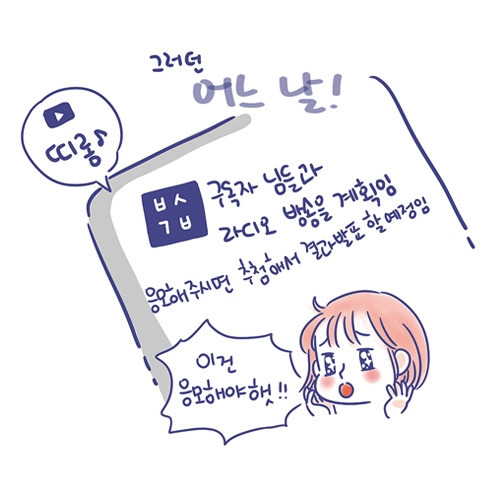 그러던
어느 날!
띠롱♪
ㅂㅅ
ㄱㅂ
구독자 님들과
라디오 방송을 계획임
응모해주시면 추첨해서 결과발표 할 예정임
이건
응모해야햇!!